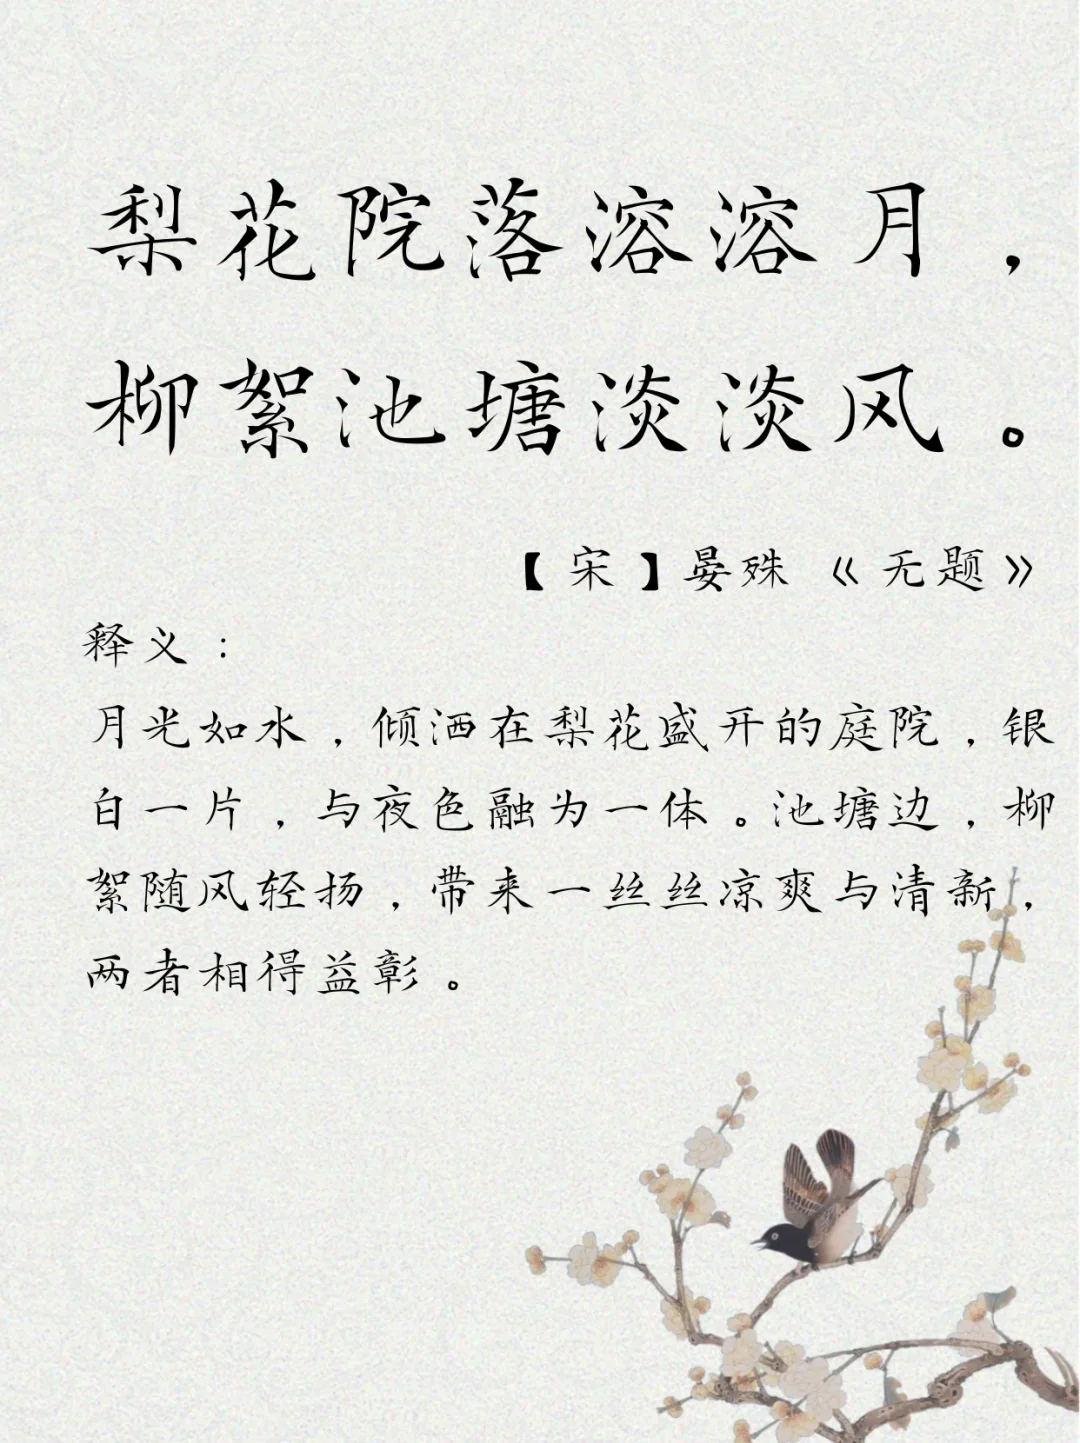 梨花院落溶溶月，
柳絮池塘淡淡风。
【宋】晏殊《无题》
释义：
月光如水，倾洒在梨花盛开的庭院，银
白一片，与夜色融为一体。池塘边，柳
絮随风轻扬，带来一丝丝凉爽与清新，
两者相得益彰。